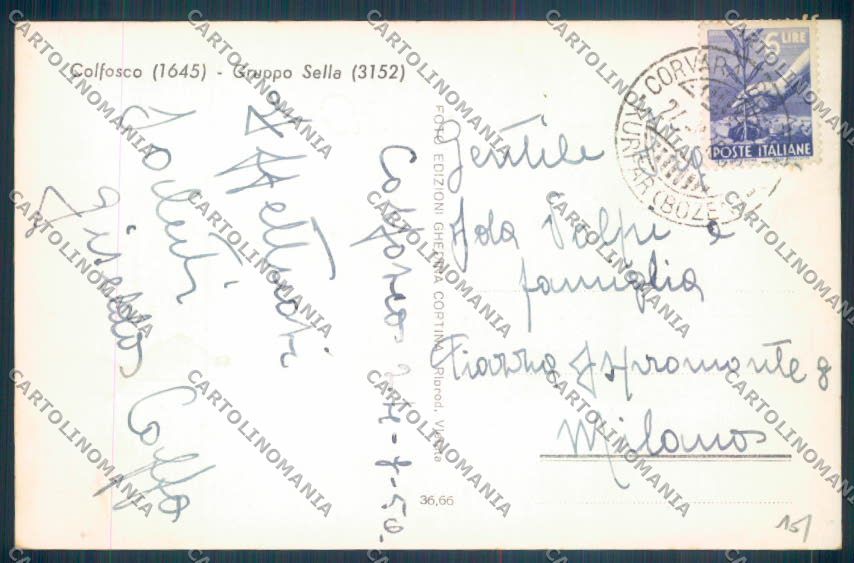 Colfosco (1645) - Gruppo Sella (3152)
Affettuosi
saluti
Colfosco 24-8-50.
FOTO EDIZIONI GHEDINA CORTINA Riprod. Vietata
36,66
Gentile
Ida Volpi e
famiglia
Piazza Aspromonte 8
Milano
6 LIRE
POSTE ITALIANE
CORVARA
KURFAR (BOZEN)
15/
CARTOLINOMANIA